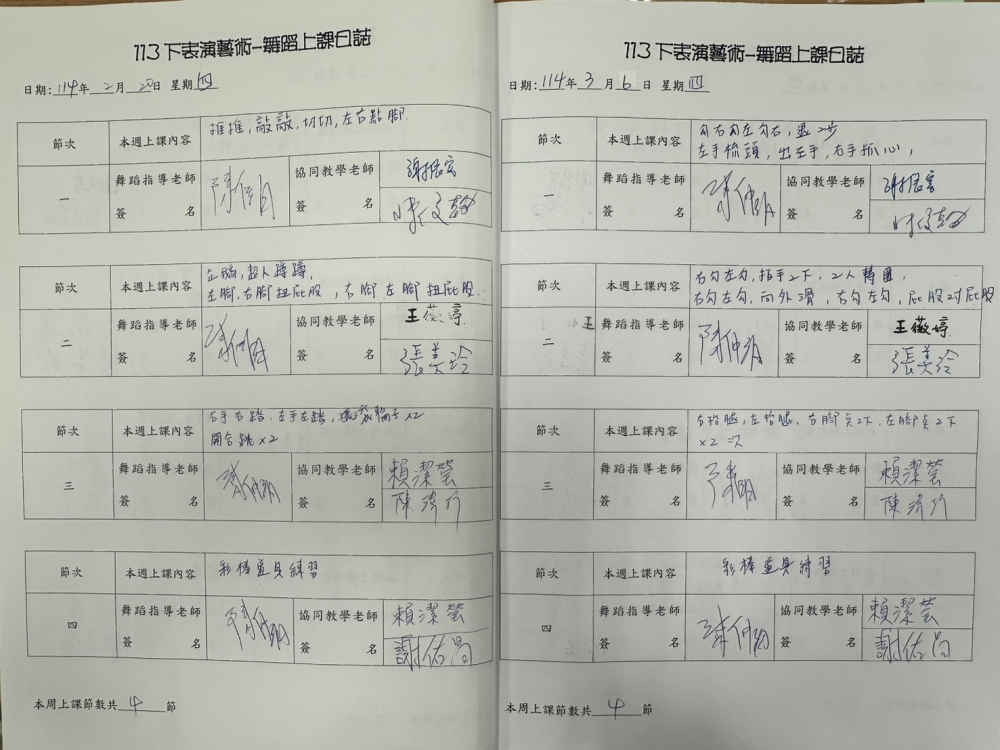 113下表演藝術-舞蹈上課日誌
日期: 114年 2月 20日 星期四
節次 本週上課內容 推推,敲敲,切切,左右點腳.
一 舞蹈指導老師簽名 協同教學老師簽名 謝
節次 本週上課內容 企鵝,超人蹲蹲,
左腳,右腳扭屁股,右腳左腳扭屁股.
二 舞蹈指導老師簽名 協同教學老師簽名 王薇婷
張美玲
節次 本週上課內容 右手右踏,左手左踏,滾輪子x2
開合跳x2
三 舞蹈指導老師簽名 協同教學老師簽名 賴潔瑩
陳
節次 本週上課內容 彩棒道具練習
四 舞蹈指導老師簽名 協同教學老師簽名 賴潔瑩
謝佑昌
本周上課節數共 4 節
113下表演藝術-舞蹈上課日誌
日期: 114年 3月 6日 星期四
節次 本週上課內容 勾右勾左勾右,2步
左手梳頭,出左手,右手抓心,
一 舞蹈指導老師簽名 協同教學老師簽名 謝
節次 本週上課內容 右勾左勾,拍手2下,2人轉圈,
右勾左勾,向外滑,右勾左勾,屁股对屁股
王
二 舞蹈指導老師簽名 協同教學老師簽名 王薇婷
張美玲
節次 本週上課內容 右抬腿,左抬腿,右腳點2下.左腳點2下
x2次
三 舞蹈指導老師簽名 協同教學老師簽名 賴潔瑩
陳
節次 本週上課內容 彩棒道具練習
四 舞蹈指導老師簽名 協同教學老師簽名 賴潔瑩
謝佑昌
本周上課節數共 4 節